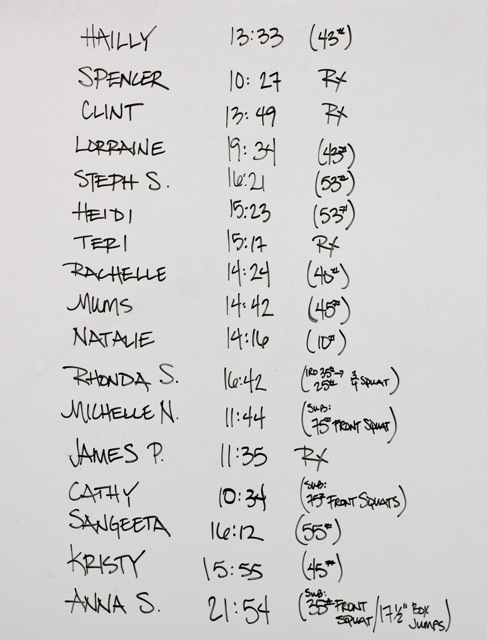 HAILLY 13:33 (43#)
SPENCER 10:27 Rx
CLINT 13:49 Rx
LORRAINE 19:34 (43#)
STEPH S. 16:21 (53#)
HEIDI 15:23 (53#)
TERI 15:17 Rx
RACHELLE 14:24 (40#)
MUMS 14:42 (45#)
NATALIE 14:16 (10#)
RHONDA S. 16:42 (1RD 35# → 3/4 SQUAT)
25#
MICHELLE N. 11:44 (SUB:
75# FRONT SQUAT)
JAMES P. 11:35 Rx
CATHY 10:34 (SUB:
75# FRONT SQUATS)
SANGEETA 16:12 (55#)
KRISTY 15:55 (45#)
ANNA S. 21:54 (SUB:
35# FRONT SQUAT/17 1/2" BOX JUMPS)